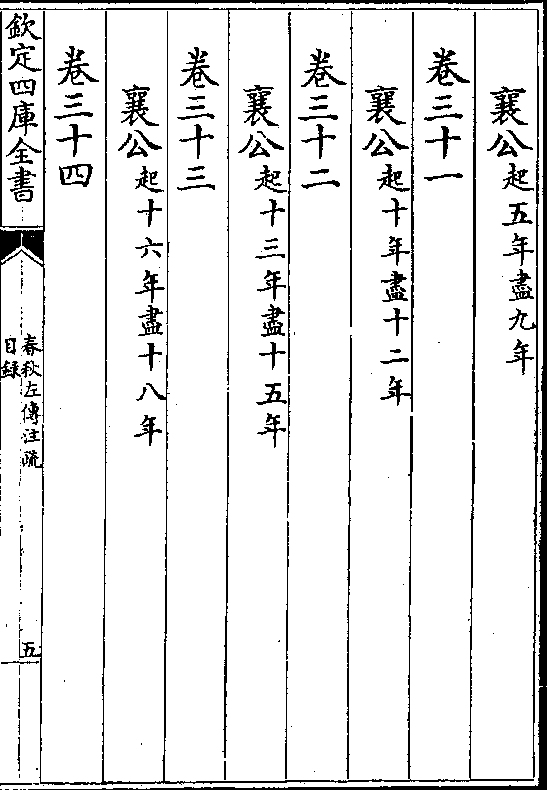 襄公起五年盡九年
卷三十一
襄公起十年盡十二年
卷三十二
襄公起十三年盡十五年
卷三十三
襄公起十六年盡十八年
卷三十四
欽定四庫全書
春秋左傳注疏
目録
五